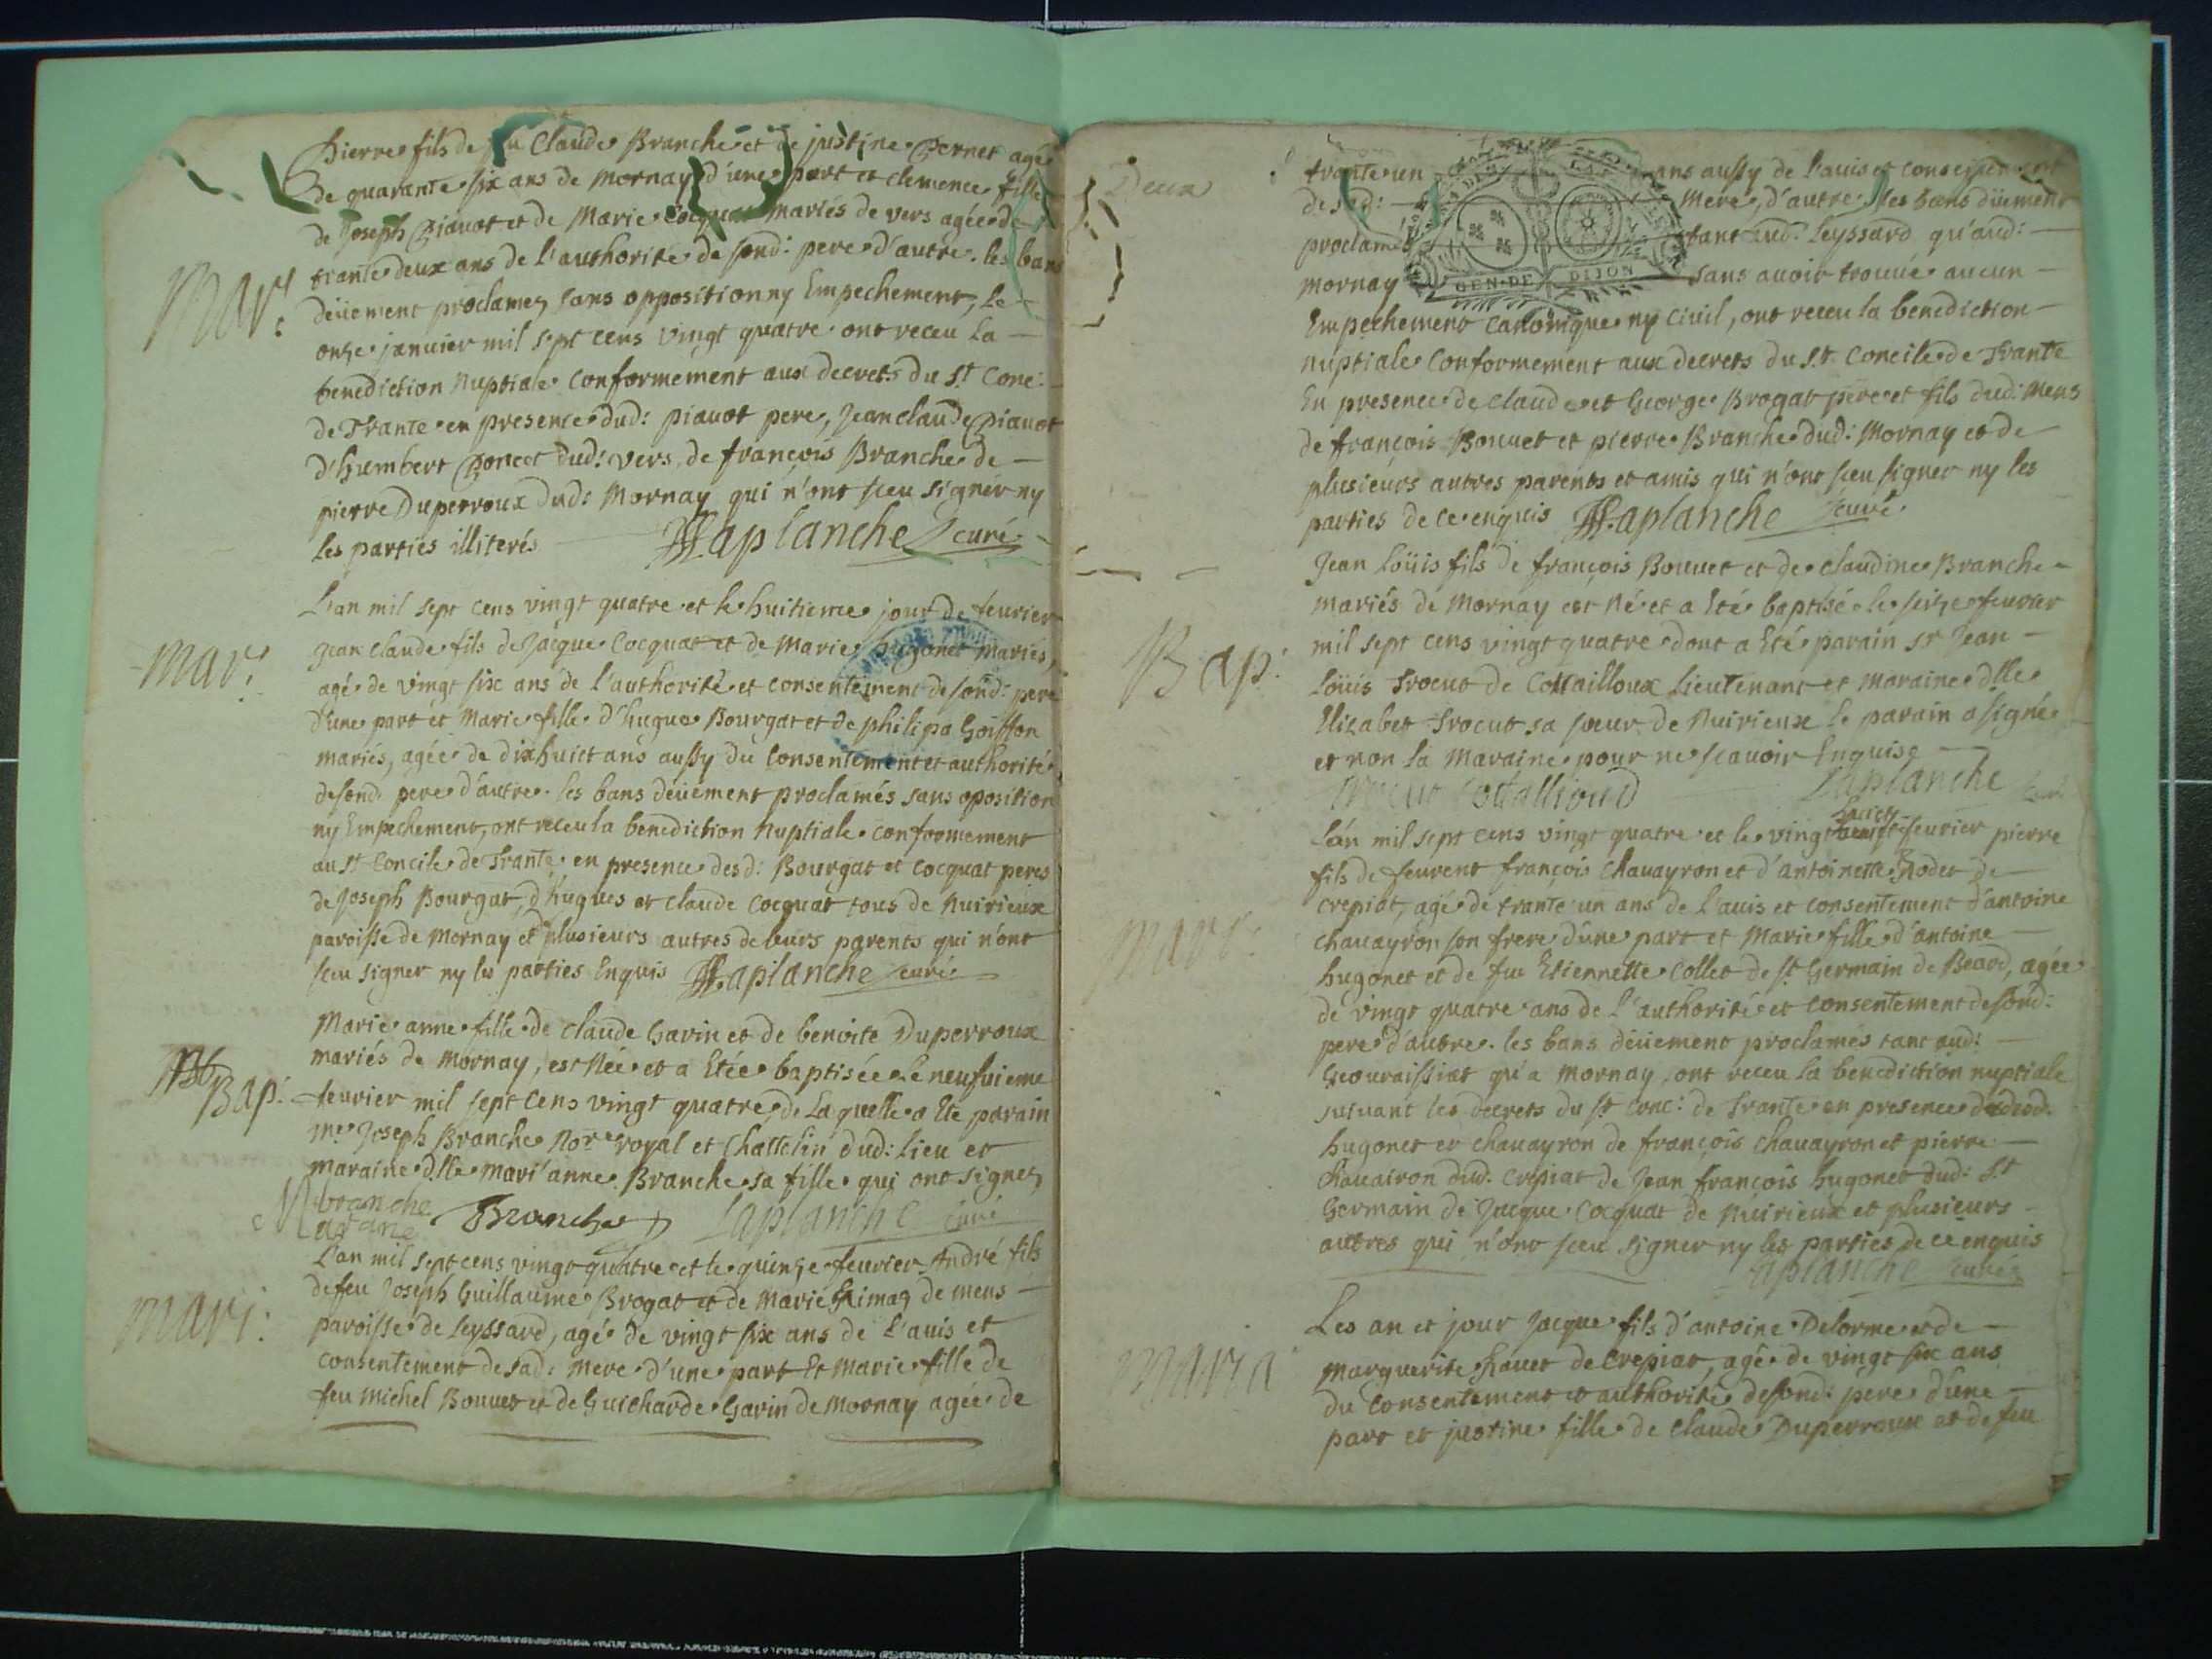 Pierre fils de feu Claude Branche et de justine Pernet agé
De quarante six ans de Mornay d'une part et clemence fille
de Joseph Piavot et de Marie Cocquat mariés de vers agée de
trante deux ans de l'authorité de sond: pere d'autre. les bans
Mar:
deüement proclamez sans opposition ny Empechement, Le
onze janvier mil sept cens vingt quatre ont receu La
benediction Nuptiale Conformement aux decrets du St. Conc:
de Trante en presence dud: piavot pere, Jean claude Piavot
d'humbert Poncet dud: vers, de françois Branche de
pierre Duperroux dud: Mornay qui n'ont sceu signer ny
les parties illiterés Laplanche curé
L'an mil sept cens vingt quatre et le huitieme jour de feurier
Jean Claude fils de Jacque Cocquat et de Marie hugonet mariés,
Mar:
agé de vingt six ans de l'authorité et consentement de sond: pere
d'une part et Marie fille d'hugue Bourgat et de philipa Goiffon
mariés, agée de dixhuict ans aussy du Consentement et authorité
de sond. pere d'autre. les bans deüement proclamés sans oposition
ny Empechement, ont receu la benediction Nuptiale conformement
au St Concile de Trante en presence desd: Bourgat et Cocquat peres
de Joseph Bourgat, d'hugues et Claude Cocquat tous de Nuirieux
paroisse de Mornay et plusieurs autres de leurs parents qui n'ont
sceu signer ny les parties Enquis Laplanche curé
Marie anne fille de claude Gavin et de benoite Duperroux
mariés de Mornay, est Née et a Etée baptisée Le neufvieme
Bap:
feurier mil sept cens vingt quatre de Laquelle a Eté parain
me Joseph Branche Nore royal et Chattelin dud: lieu et
maraine dlle mari'anne Branche sa fille qui ont signez
M branche
Branche Laplanche curé
L'an mil sept cens vingt quatre et le quinze feurier André fils
de feu Joseph Guillaume Brogat et de Marie de mens
Mari:
paroisse de Leyssard, agé de vingt six ans de L'auis et
consentement de sad: mere d'une part Et Marie fille de
feu Michel Bouvet et de Guicharde Gavin de Mornay agée de
Deux
trante un ans aussy de l'auis et consentement
de sad: Mere, d'autre, les bans düement
proclamés tant aud: Leyssard qu'aud:
mornay sans avoir trouué aucun
GEN·DE DIJON
Empechement Canonique ny Civil, ont receu la benediction
nuptiale Conformement aux decrets du St. Concile de Trante
En presence de claude et George Brogat pere et fils dud: mens
de françois Bouvet et pierre Branche dud: Mornay et de
plusieurs autres parents et amis qui n'ont sceu signer ny les
parties de ce enquis Laplanche curé
Jean Loüis fils de françois Bouvet et de claudine Branche
mariés de Mornay est Né et a Eté baptisé le seize feurier
Bap:
mil sept cens vingt quatre dont a Eté parain sr Jean
Loüis Trocut de Cottailloux Lieutenant et maraine dlle
Elizabet Trocut sa soeur de Nuirieux le parain a signé
et non la Maraine pour ne scavoir Enquise
Trocut Laplanche curé
huict
L'an mil sept cens vingt quatre et le vingt feurier pierre
fils de feu françois Chavayron et d'antoinette Rodet de
crepiat, agé de trante un ans de l'auis et consentement d'antoine
Mari:
chavayron son frere d'une part et Marie fille d'antoine
hugonet et de feu Etiennette Collet de St Germain de Beard, agée
de vingt quatre ans de l'authorité et consentement de sond:
pere d'autre. les bans deüement proclamés tant aud:
Geovraissiat qu'a Mornay, ont receu la benediction nuptiale
suivant les decrets du St conc: de Trante en presence desd.
hugonet et chavayron de françois chavayron et pierre
Chavairon dud. Crepiat de Jean françois hugonet dud: St
Germain de Jacque Cocquat de Nuirieux et plusieurs
autres qui n'ont sceu signer ny les parties de ce enquis
Laplanche curé
Les an et jour Jacque fils d'antoine Delorme et de
Maria
marguerite de Crepiat, agé de vingt six ans
du Consentement et authorité de sond: pere d'une
part et justine fille de Claude Duperroux et de feu